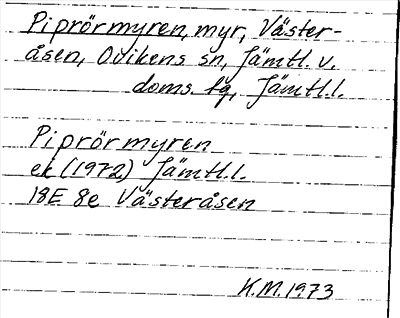 Piprörmyren, myr, Väster-
åsen, Ovikens sn, Jämtl. v.
doms. tg, Jämtl.l.
Piprörmyren
ek (1972) Jämtl.l.
18E 8e Västeråsen
K.M. 1973